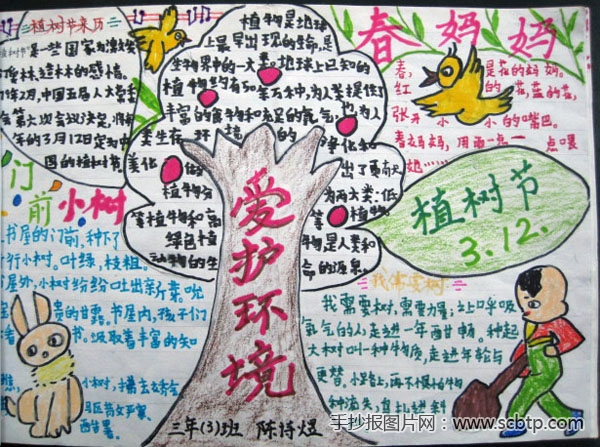 植树节来历
是一些国家为激发
造林的感情。
年2月,中国五届人大常
会第六次会议决定,将
年的3月12日定为中
国的植树节
门前小树
书屋的门前,种下了
行小树。叶绿,枝粗。
屋外,小树纷纷吐出新芽。
贵的甘露。书屋内,孩子们
书。汲取着丰富的知
小树,
植物是地球
上最早出现的生命,是
生物界中的一大类。地球上已知的
植物约有50万种,为人类提供了
丰富的食物和充足的氧气,也为人
类生存环境的净化和
美化做出了贡献
植物分为两大类:低
等植物和高等植物,
绿色植物是人类和
动物的生命的源泉
爱护环境
三年(3)班 陈诗煜
春妈妈
春,是花的妈妈。
红的花,蓝的花,
张开小小的嘴巴。
春妈妈,用雨一点一点喂
她……
植树节
3.12.
我需要树
我需要树,需要力量;让呼吸
氧气的人走进一年酣畅。种起
大树叫一种物质,走进年轮与
更替。小路上,再不惧怕牛物
种消失。
手抄报图片网:www.scbtp.com